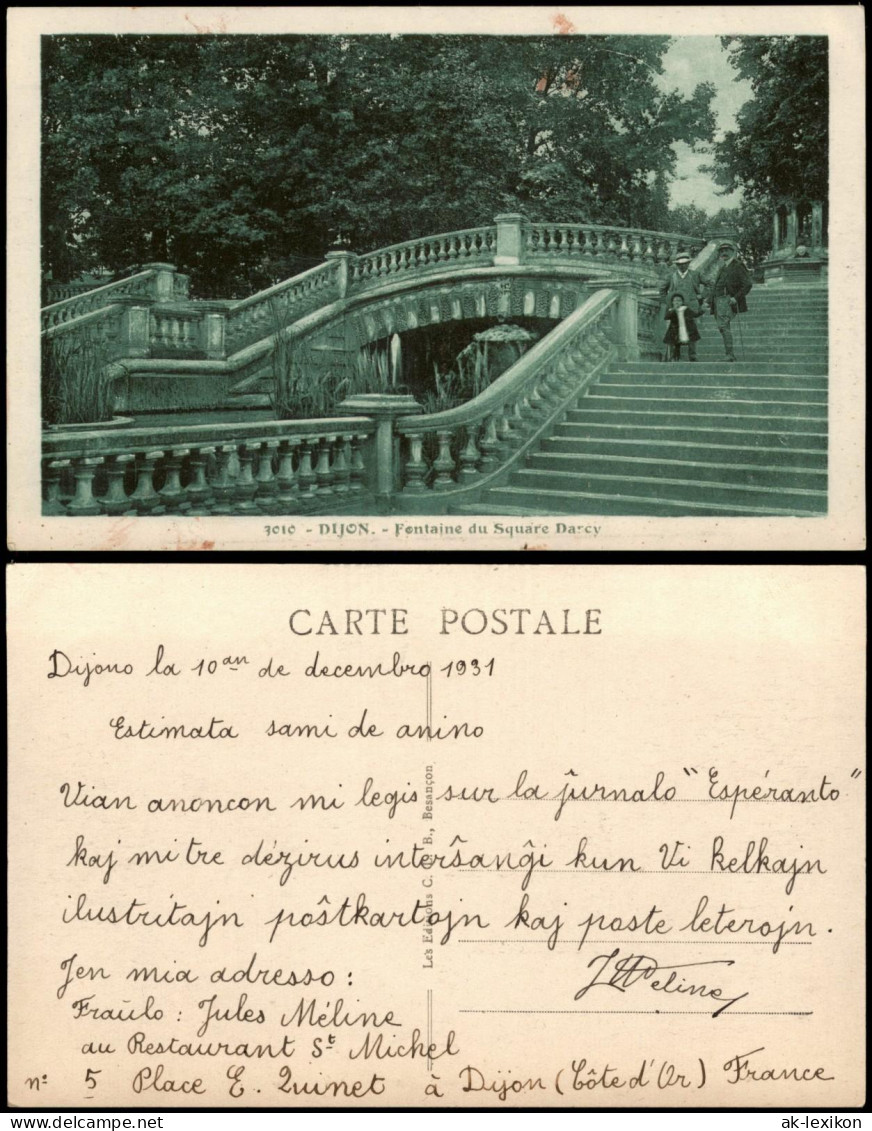 3010 - DIJON. - Fontaine du Square Darcy
CARTE POSTALE
Dijono la 10an de decembro 1931
Estimata sami de anino
Vian anoncon mi legis sur la ĵurnalo "Espéranto"
kaj mi tre dézirus interŝanĝi kun Vi kelkajn
ilustritajn poŝtkartojn kaj poste leterojn.
Jen mia adresso :
JMéline
Fraŭlo : Jules Méline
au Restaurant St Michel
nº 5 Place E. Quinet à Dijon (Côte d'Or) France
Les Editions C. L. B., Besançon
ak-lexikon
ak-lexikon.com